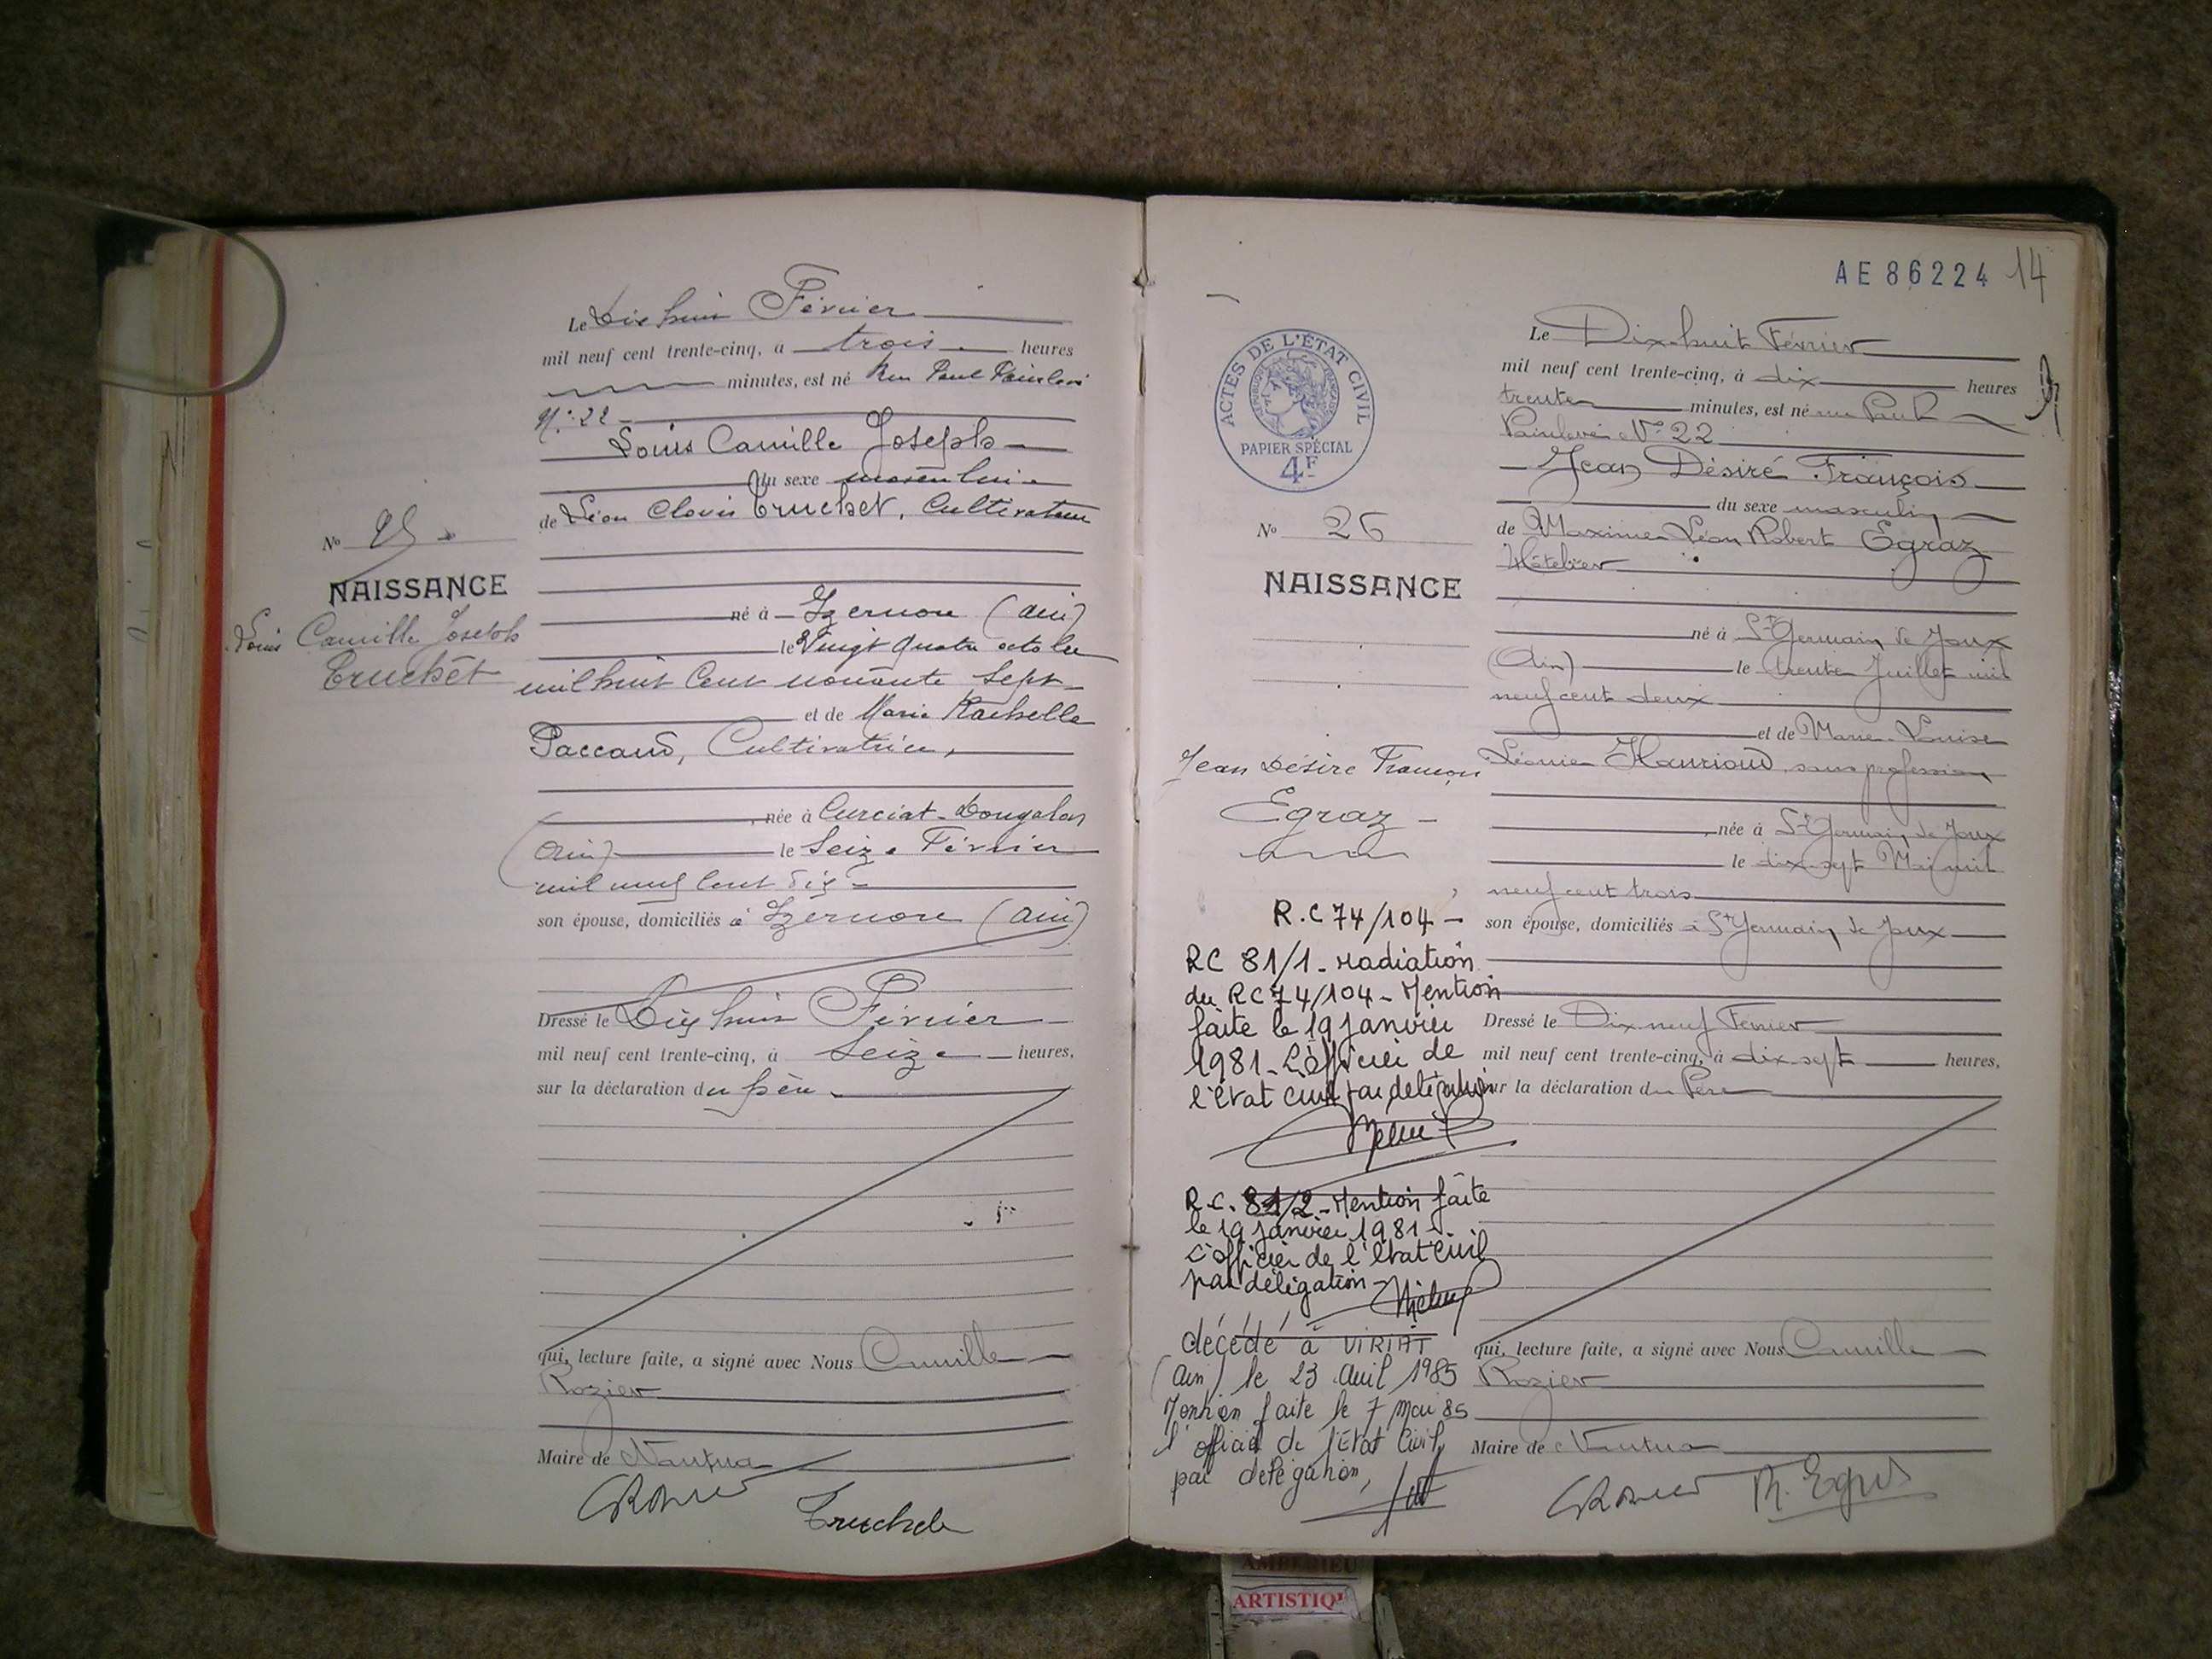 Le Dix huit Février
mil neuf cent trente-cinq, à trois heures
minutes, est né Rue Paul Painlevé
N° 22
Louis Camille Joseph
du sexe masculin
de Léon Clovis Truchet, Cultivateur
né à Izernore (Ain)
le Vingt quatre octobre
mil huit cent nonante sept
et de Marie Rachelle
Paccaud, Cultivatrice,
née à Curciat-Dongalon
(Ain) le Seize Février
mil neuf cent dix
son épouse, domiciliés à Izernore (Ain)
Dressé le Dix huit Février
mil neuf cent trente-cinq, à Seize heures,
sur la déclaration du père
qui, lecture faite, a signé avec Nous Camille
Rozier
Maire de Nantua
Truchet
N° 25
NAISSANCE
Louis Camille Joseph
Truchet
AE 86224 14
ACTES DE L'ÉTAT CIVIL
RÉPUBLIQUE FRANÇAISE
PAPIER SPÉCIAL
4F
N° 26
NAISSANCE
Jean Désiré François
Egraz
R.C 74/104 -
RC 81/1 - radiation
du RC 74/104 - Mention
faite le 19 janvier
1981 - L'officier de
l'état civil par délégation
R.C. 81/2 - Mention faite
le 19 janvier 1981 -
L'officier de l'état civil
par délégation -
décédé à VIRIAT
(Ain) le 23 avril 1985
Mention faite le 7 mai 85
l'officier de l'Etat Civil,
par délégation,
Le Dix-huit Février
mil neuf cent trente-cinq, à dix heures
trente minutes, est né rue Paul
Painlevé N° 22
Jean Désiré François
du sexe masculin
de Maxime Léon Robert Egraz
Hôtelier
né à St Germain de Joux
(Ain) le trente Juillet mil
neuf cent deux
et de Marie Louise
Léonie Hanrioud, sans profession
née à St Germain de Joux
le dix-sept Mai mil
neuf cent trois
son épouse, domiciliés à St Germain de Joux
Dressé le Dix-neuf Février
mil neuf cent trente-cinq, à dix-sept heures,
sur la déclaration du Père
qui, lecture faite, a signé avec Nous Camille
Rozier
Maire de Nantua
R. Egraz
ARTISTIQ